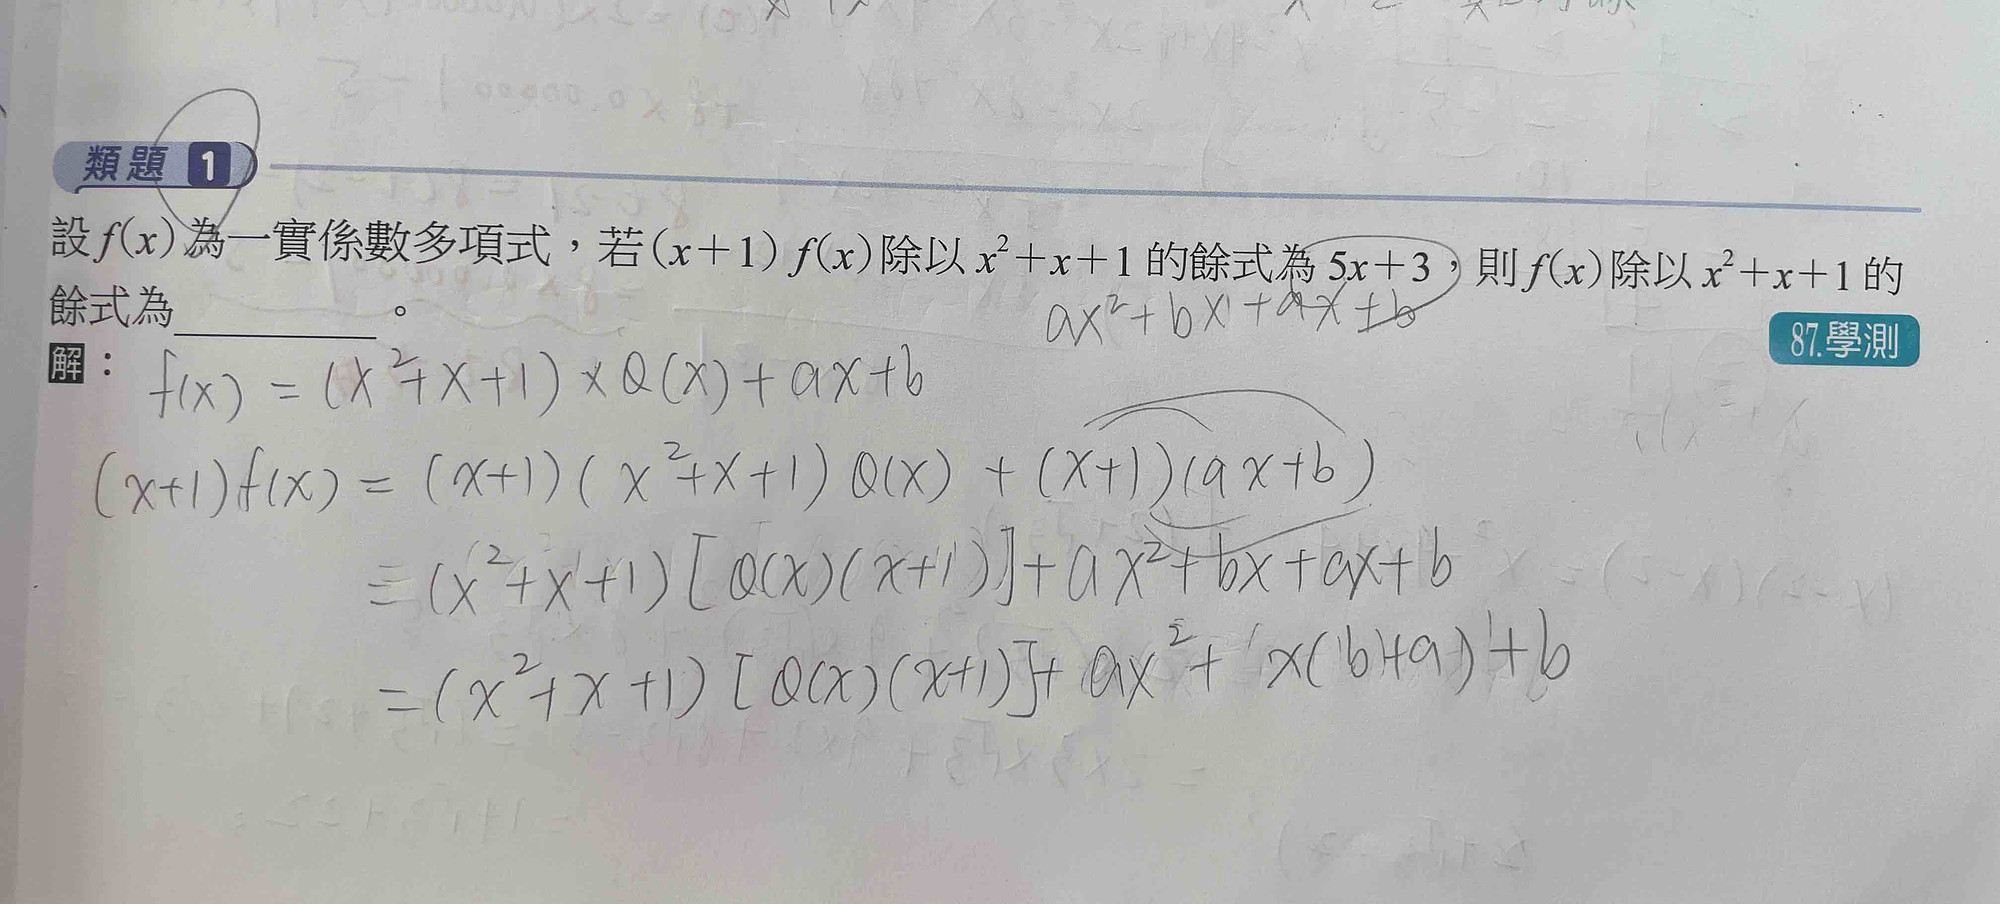 類題 1
設f(x)為一實係數多項式，若(x+1)f(x)除以x²+x+1的餘式為5x+3，則f(x)除以x²+x+1的
餘式為________。
ax²+bx+ax+b
87.學測
解：f(x) = (x²+x+1)×Q(x)+ax+b
(x+1)f(x) = (x+1)(x²+x+1)Q(x) + (x+1)(ax+b)
=(x²+x+1)[Q(x)(x+1)]+ax²+bx+ax+b
=(x²+x+1)[Q(x)(x+1)]+ax²+x(b+a)+b